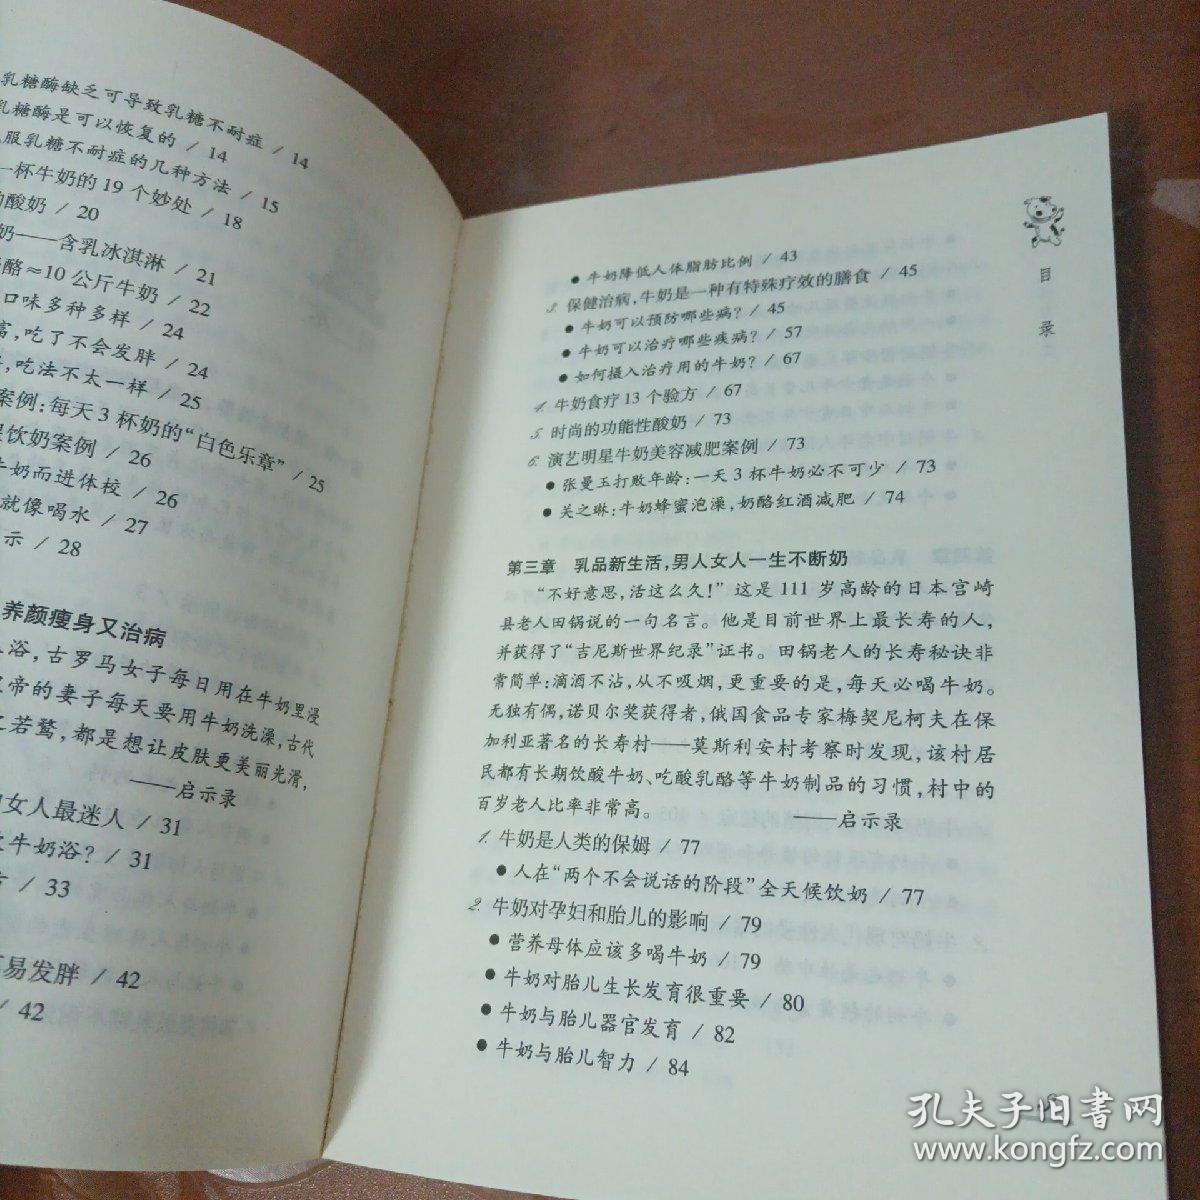 乳糖酶缺乏可导致乳糖不耐症 / 14
乳糖酶是可以恢复的 / 14
服乳糖不耐症的几种方法 / 15
一杯牛奶的19个妙处 / 18
酸奶 / 20
奶——含乳冰淇淋 / 21
酪≈10公斤牛奶 / 22
口味多种多样 / 24
富,吃了不会发胖 / 24
,吃法不太一样 / 25
案例:每天3杯奶的“白色乐章” / 25
饮奶案例 / 26
牛奶而进体校 / 26
就像喝水 / 27
示 / 28
养颜瘦身又治病
浴,古罗马女子每日用在牛奶里浸
帝的妻子每天要用牛奶洗澡,古代
之若鹜,都是想让皮肤更美丽光滑,
——启示录
女人最迷人 / 31
牛奶浴? / 31
方 / 33
易发胖 / 42
/ 42
目
录
● 牛奶降低人体脂肪比例 / 43
3. 保健治病,牛奶是一种有特殊疗效的膳食 / 45
● 牛奶可以预防哪些病? / 45
● 牛奶可以治疗哪些疾病? / 57
● 如何摄入治疗用的牛奶? / 67
4. 牛奶食疗13个验方 / 67
5. 时尚的功能性酸奶 / 73
6. 演艺明星牛奶美容减肥案例 / 73
● 张曼玉打败年龄:一天3杯牛奶必不可少 / 73
● 关之琳:牛奶蜂蜜泡澡,奶酪红酒减肥 / 74
第三章 乳品新生活,男人女人一生不断奶
“不好意思,活这么久!”这是111岁高龄的日本宫崎
县老人田锅说的一句名言。他是目前世界上最长寿的人,
并获得了“吉尼斯世界纪录”证书。田锅老人的长寿秘诀非
常简单:滴酒不沾,从不吸烟,更重要的是,每天必喝牛奶。
无独有偶,诺贝尔奖获得者,俄国食品专家梅契尼柯夫在保
加利亚著名的长寿村——莫斯利安村考察时发现,该村居
民都有长期饮酸牛奶、吃酸乳酪等牛奶制品的习惯,村中的
百岁老人比率非常高。 ——启示录
1. 牛奶是人类的保姆 / 77
● 人在“两个不会说话的阶段”全天候饮奶 / 77
2. 牛奶对孕妇和胎儿的影响 / 79
● 营养母体应该多喝牛奶 / 79
● 牛奶对胎儿生长发育很重要 / 80
● 牛奶与胎儿器官发育 / 82
● 牛奶与胎儿智力 / 84
孔夫子旧书网
www.kongfz.com